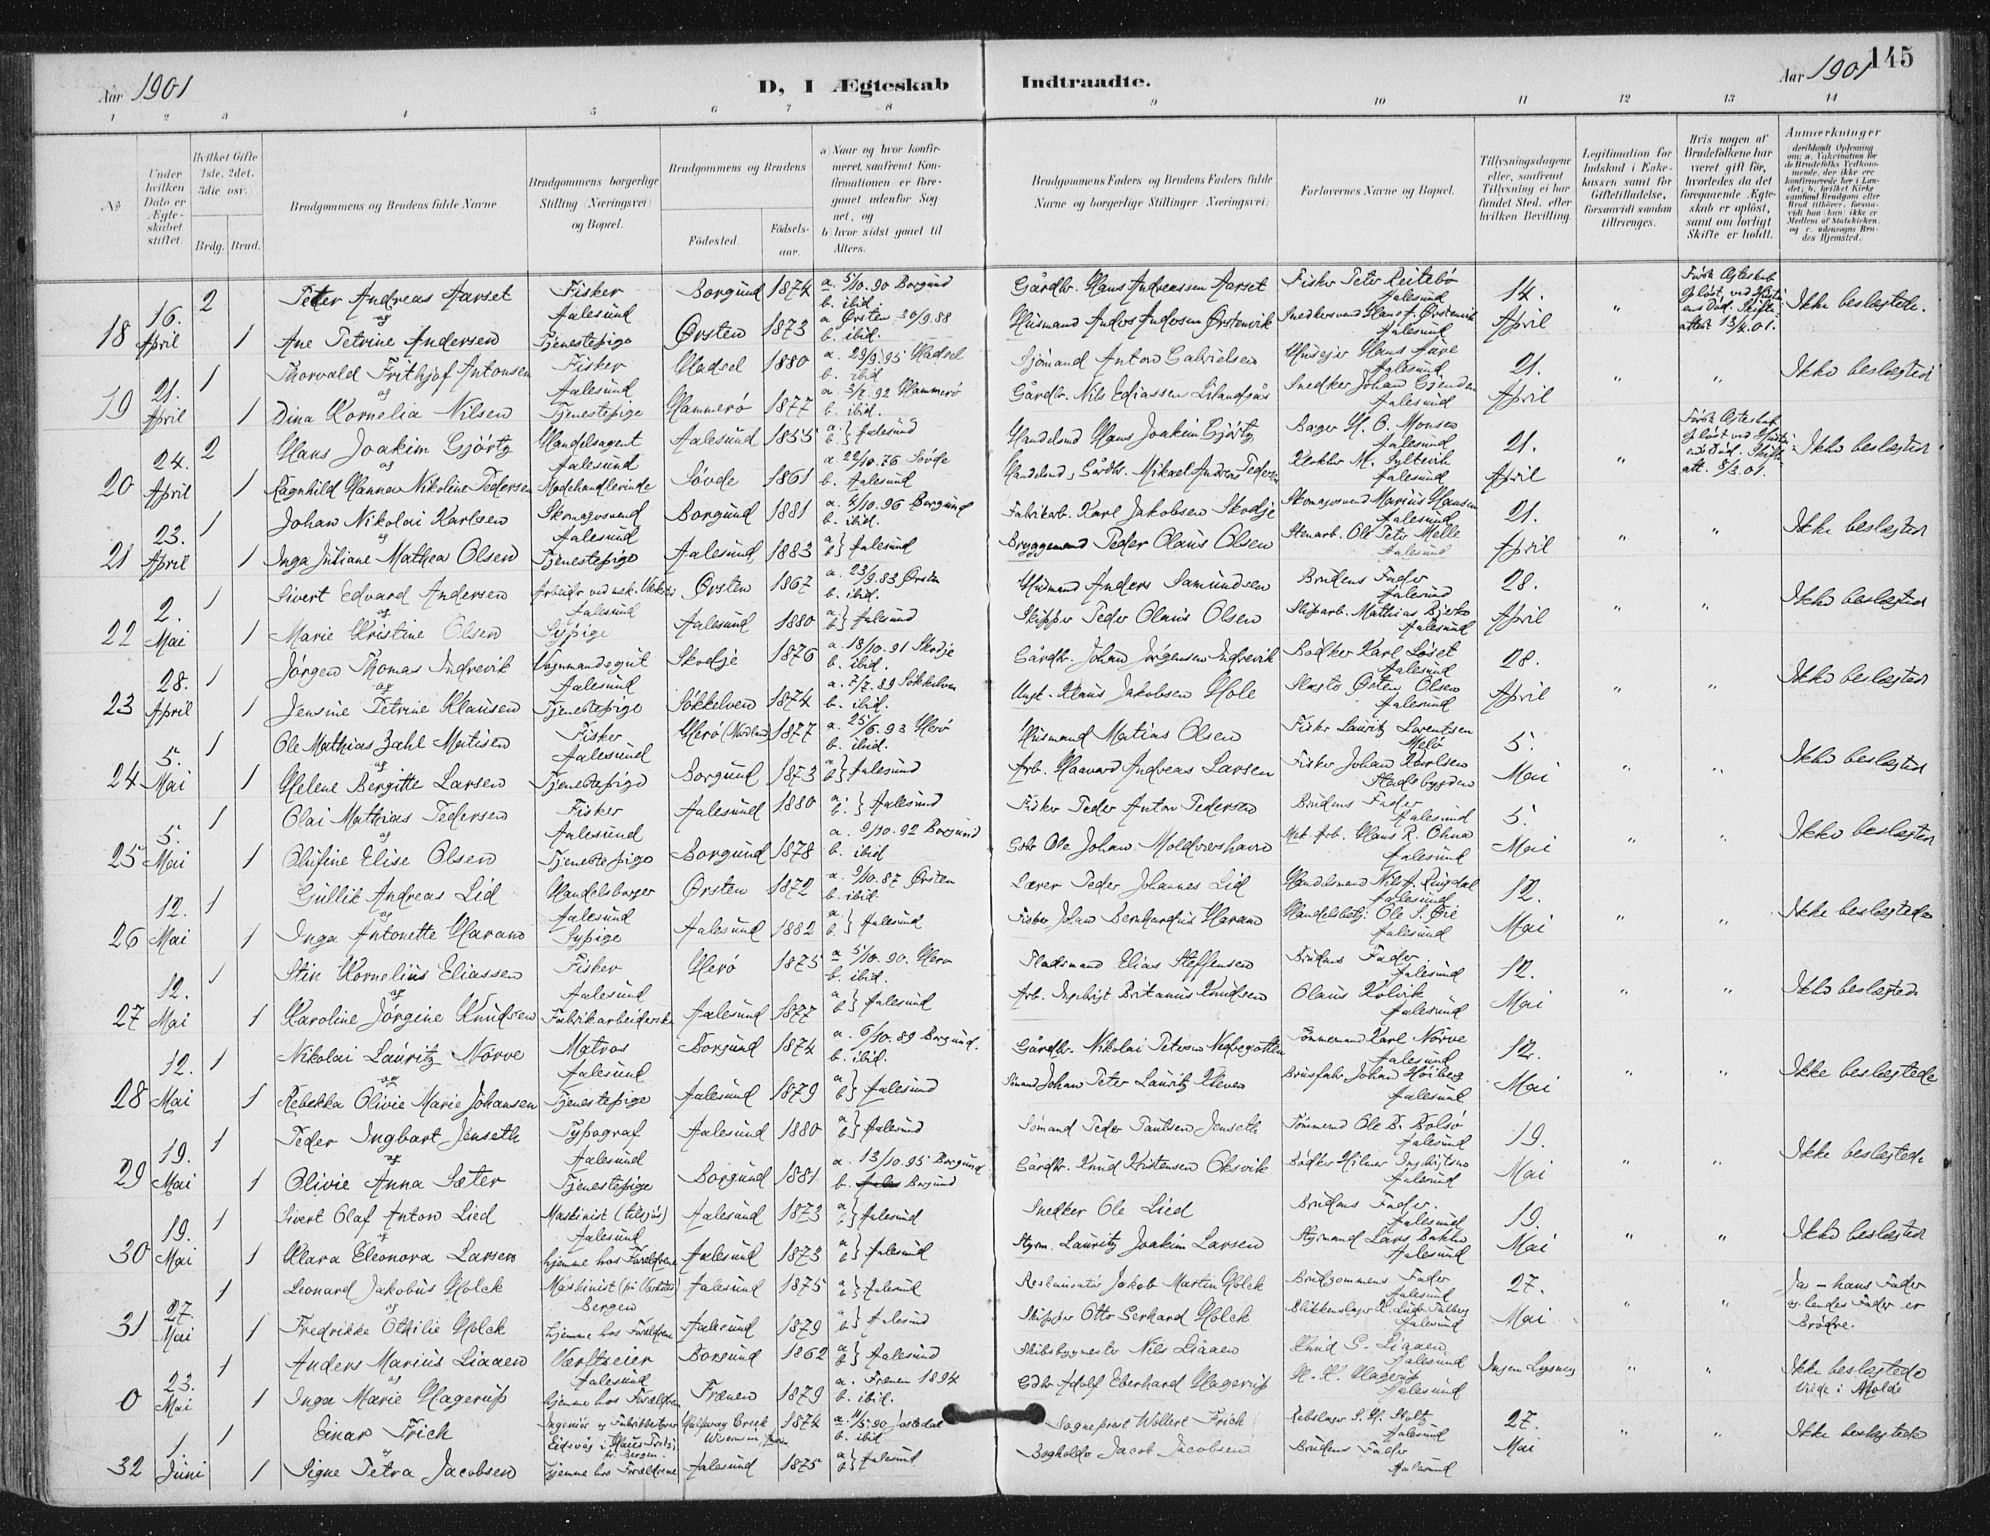 Aar 1901
D, I Ægteskab Indtraadte.
Aar 1901
145
1 2 3 4 5 6 7 8 9 10 11 12 13 14
No
Under hvilken Dato er Ægteskabet stiftet.
Hvilket Gifte 1ste, 2det, 3die osv.
Brdg. Brud.
Brudgommens og Brudens fulde Navne
Brudgommens borgerlige Stilling (Næringsvei) og Bopæl.
Brudgommens og Brudens
Fødested. Fødselsaar.
a) Naar og hvor konfirmeret, saafremt Konfirmationen er foregaaet udenfor Sognet, og
b) hvor sidst gaaet til Alters.
Brudgommens Faders og Brudens Faders fulde Navne og borgerlige Stillinger (Næringsvei)
Forlovernes Navne og Bopæl.
Tillysningsdagene eller, saafremt Tillysning ei har fundet Sted, efter hvilken Bevilling.
Legitimation for Indskud i Enkekassen samt for Giftetilladelse, forsaavidt saadan tiltrænges.
Hvis nogen af Brudefolkene har været gift før, hvorledes da det foregaaende Ægteskab er opløst, samt om lovligt Skifte er holdt.
Anmærkninger
18 16. April 2 Peter Andreas Aarset Fisker Aalesund Borgund 1874 a. 5/10.90 Borgund b. ibid. Gårdbr. Hans Andreassen Aarset Fisker Peter Reitebø Aalesund 14. April " Ikke beslægtede.
og
1 Ane Petrine Andersen Tjenestepige Ørsten 1873 a Ørsten 30/9.88 b. ibid. Husmand Anders Andersen Ørstenvik Snedkersvend Hans A. Ørstenvik Aalesund
19 21. April 1 Thorvald Frithjof Antonsen Fisker Aalesund Hadsel 1880 a. 29/9.95 Hadsel b. ibid Sjömand Anton Gabrielsen Husejer Hans Aure Aalesund 21. April " " Ikke beslægted
og
1 Dina Kornelia Nilsen Tjenestepige Hammerø 1877 a. 3/7.92 Hammerø b. ibid. Gårdbr. Nils Ediassen Snedker Johan Aalesund
20 24. April 2 Hans Joakim Gjörtz Handelsagent Aalesund Aalesund 1855 a. b. } Aalesund Handelsmd Hans Joakim Gjörtz Bager H. O. Monsen Aalesund 21. April " Ikke beslægted
og
1 Ragnhild Hanna Nikoline Pedersen Modehandlerinde Søvde 1861 a 22/10.76 Søvde b. Aalesund Handelsmd, Gårdbr. Mikael Andreas Pedersen Klokker M. Syltevik Aalesund
21 23. April 1 Johan Nikolai Karlsen Skomagersvend Aalesund Borgund 1881 a. 4/10.96 Borgund b. ibid. Fabrikarb. Karl Jakobsen Skodje Skomagersvend Marius Hansen Aalesund 21. April " " Ikke beslægted
og
1 Inga Juliane Mathea Olsen Tjenestepige Aalesund 1883 a b } Aalesund Bryggemand Peder Olaus Olsen Stenarb. Ole Peter Melle Aalesund
22 2. Mai 1 Sivert Edvard Andersen Arbeider ved mek. Værksted Aalesund Ørsten 1867 a. 23/9.83 Ørsten b. ibid. Husmand Anders Samundsen Brudens Fader Aalesund 28. April " " Ikke beslægted
og
1 Marie Kristine Olsen Sypige Aalesund 1880 a b } Aalesund Skipper Peder Olaus Olsen Sliparb. Mathias Bjerke Aalesund
23 28. April 1 Jörgen Thomas Indrevik Vognmandsgut Aalesund Skodje 1876 a. 18/10.91 Skodje b. ibid. Gårdbr. Johan Jörgensen Indrevik Bødker Karl Løset Aalesund 28. April " " Ikke beslægted
og
1 Jensine Petrine Klausen Tjenestepige Søkkelven 1874 a. 7/7.89 Søkkelven b. ibid. Ungk. Klaus Jakobsen Hole Østen Olsen Aalesund
24 5. Mai 1 Ole Mathias Zahl Matisen Fisker Aalesund Herø (Nordland) 1877 a. 25/6.93 Herø b. ibid. Husmand Matias Olsen Fisker Lauritz Lorentzen Melø 5. Mai " " Ikke beslægted
og
1 Helene Bergitte Larsen Tjenestepige Borgund 1873 a b } Aalesund Arb. Haavard Andreas Larsen Fisker Johan Karlsen Stadsbygden
25 5. Mai 1 Olai Mathias Pedersen Fisker Aalesund Aalesund 1880 a. b. } Aalesund Fisker Peder Anton Pedersen Brudens Fader Aalesund 5. Mai " " Ikke beslægted
og
1 Olufine Elise Olsen Tjenestepige Borgund 1878 a. 9/10.92 Borgund b. ibid Gbr Ole Johan Moldvershavn Mek Arb. Hans R. Ohna Aalesund
26 12. Mai 1 Gullik Andreas Lid Handelsborger Aalesund Ørsten 1872 a. 9/10.87 Ørsten b. ibid. Lærer Peder Johannes Lid Handelsmand Nils A. Ringdal Aalesund 12. Mai " " Ikke beslægtede
og
1 Inga Antonette Haram Sypige Aalesund 1882 a. b. } Aalesund Fisker Johan Bernhardus Haram Handelsbetj. Ole S. Øie Aalesund
27 12. Mai 1 Stin Kornelius Eliassen Fisker Aalesund Herø 1875 a 5/10.90. Herø b. ibid. Pladsmand Elias Steffensen Brudens Fader Aalesund 12. Mai " " Ikke beslægted
og
1 Karoline Jörgine Knudsen Fabrikarbeiderske Aalesund 1877 a b } Aalesund Arb. Ingebrigt Britanus Knudsen Olaus Kolvik Aalesund
28 12. Mai 1 Nikolai Lauritz Nörve Matros Aalesund Borgund 1874 a. 6/10.89 Borgund. b. ibid. Gårdbr. Nikolai Petersen Nedregotten Tømmermand Karl Nörve Aalesund 12. Mai " " Ikke beslægtede
og
1 Rebekka Olivie Marie Johansen Tjenestepige Aalesund 1879 a b } Aalesund Sömand Johan Peter Lauritz Kleven Brusfabr. Johan Høiberg Aalesund
29 19. Mai 1 Peder Ingbart Jenseth Typograf Aalesund Aalesund 1880 a b } Aalesund Sömand Peder Paulsen Jenseth Tömmermd Ole B. Bolsø Aalesund 19. Mai " " Ikke beslægtede
og
1 Olivie Anna Sæter Tjenestepige Borgund 1881 a. 13/10.95 Borgund b. Borgund Gårdbr. Knud Kristensen Oksvik Bødker Hilmar Ingbrigtsen Aalesund
30 19. Mai 1 Sivert Olaf Anton Lied Maskinist (tilsjös) Aalesund Aalesund 1873 a b } Aalesund Snedker Ole Lied Brudens Fader. Aalesund 19. Mai " " Ikke beslægted
og
1 Klara Eleonora Larsen hjemme hos Forældrene Aalesund 1873 a b } Aalesund Styrm. Lauritz Joakim Larsen Styrmand Lars Bakke Aalesund
31 27. Mai 1 Leonard Jakobus Holck Maskinist (på Værksted) Bergen Aalesund 1875 a b } Aalesund Jakob Martin Holck Brudgommens Fader Aalesund 27. Mai " " Ja – hans Fader og hendes Fader er Brödre.
og
1 Fredrikke Othilie Holck hjemme hos Forældrene Aalesund 1879 a b } Aalesund Skipper Otto Gerhard Holck Blikkenslager Aalesund
0 23. Mai 1 Anders Marius Liaaen Værftseier Aalesund Borgund 1862 a b } Aalesund Skibsbygmester Nils Liaaen Knud G. Liaaen Aalesund Ingen Lysning " " Ikke beslægtede Viede i Molde
og
1 Inga Marie Hagerup hjemme hos Forældrene Frænen 1879 a. Frænen 1894 b. ibid. Gdbr Adolf Eberhard Hagerup H. K. Hagerup Aalesund
32 1 Juni 1 Einar Frich Ingeniör og Fabrikbestyrer Eidsvåg i Hammers pr. Bergen Halfway Creek Wisconsin 1874 a 11/5.90 Jostedal b. ibid Sogneprest Wollert Frich Rebslager S. H. Stoltz Aalesund 27. Mai " " Ikke beslægtede
og
1 Signe Petra Jacobsen hjemme hos Forældrene Aalesund 1875 a b } Aalesund Bogholder Jacob Jacobsen Brudens Fader Aalesund